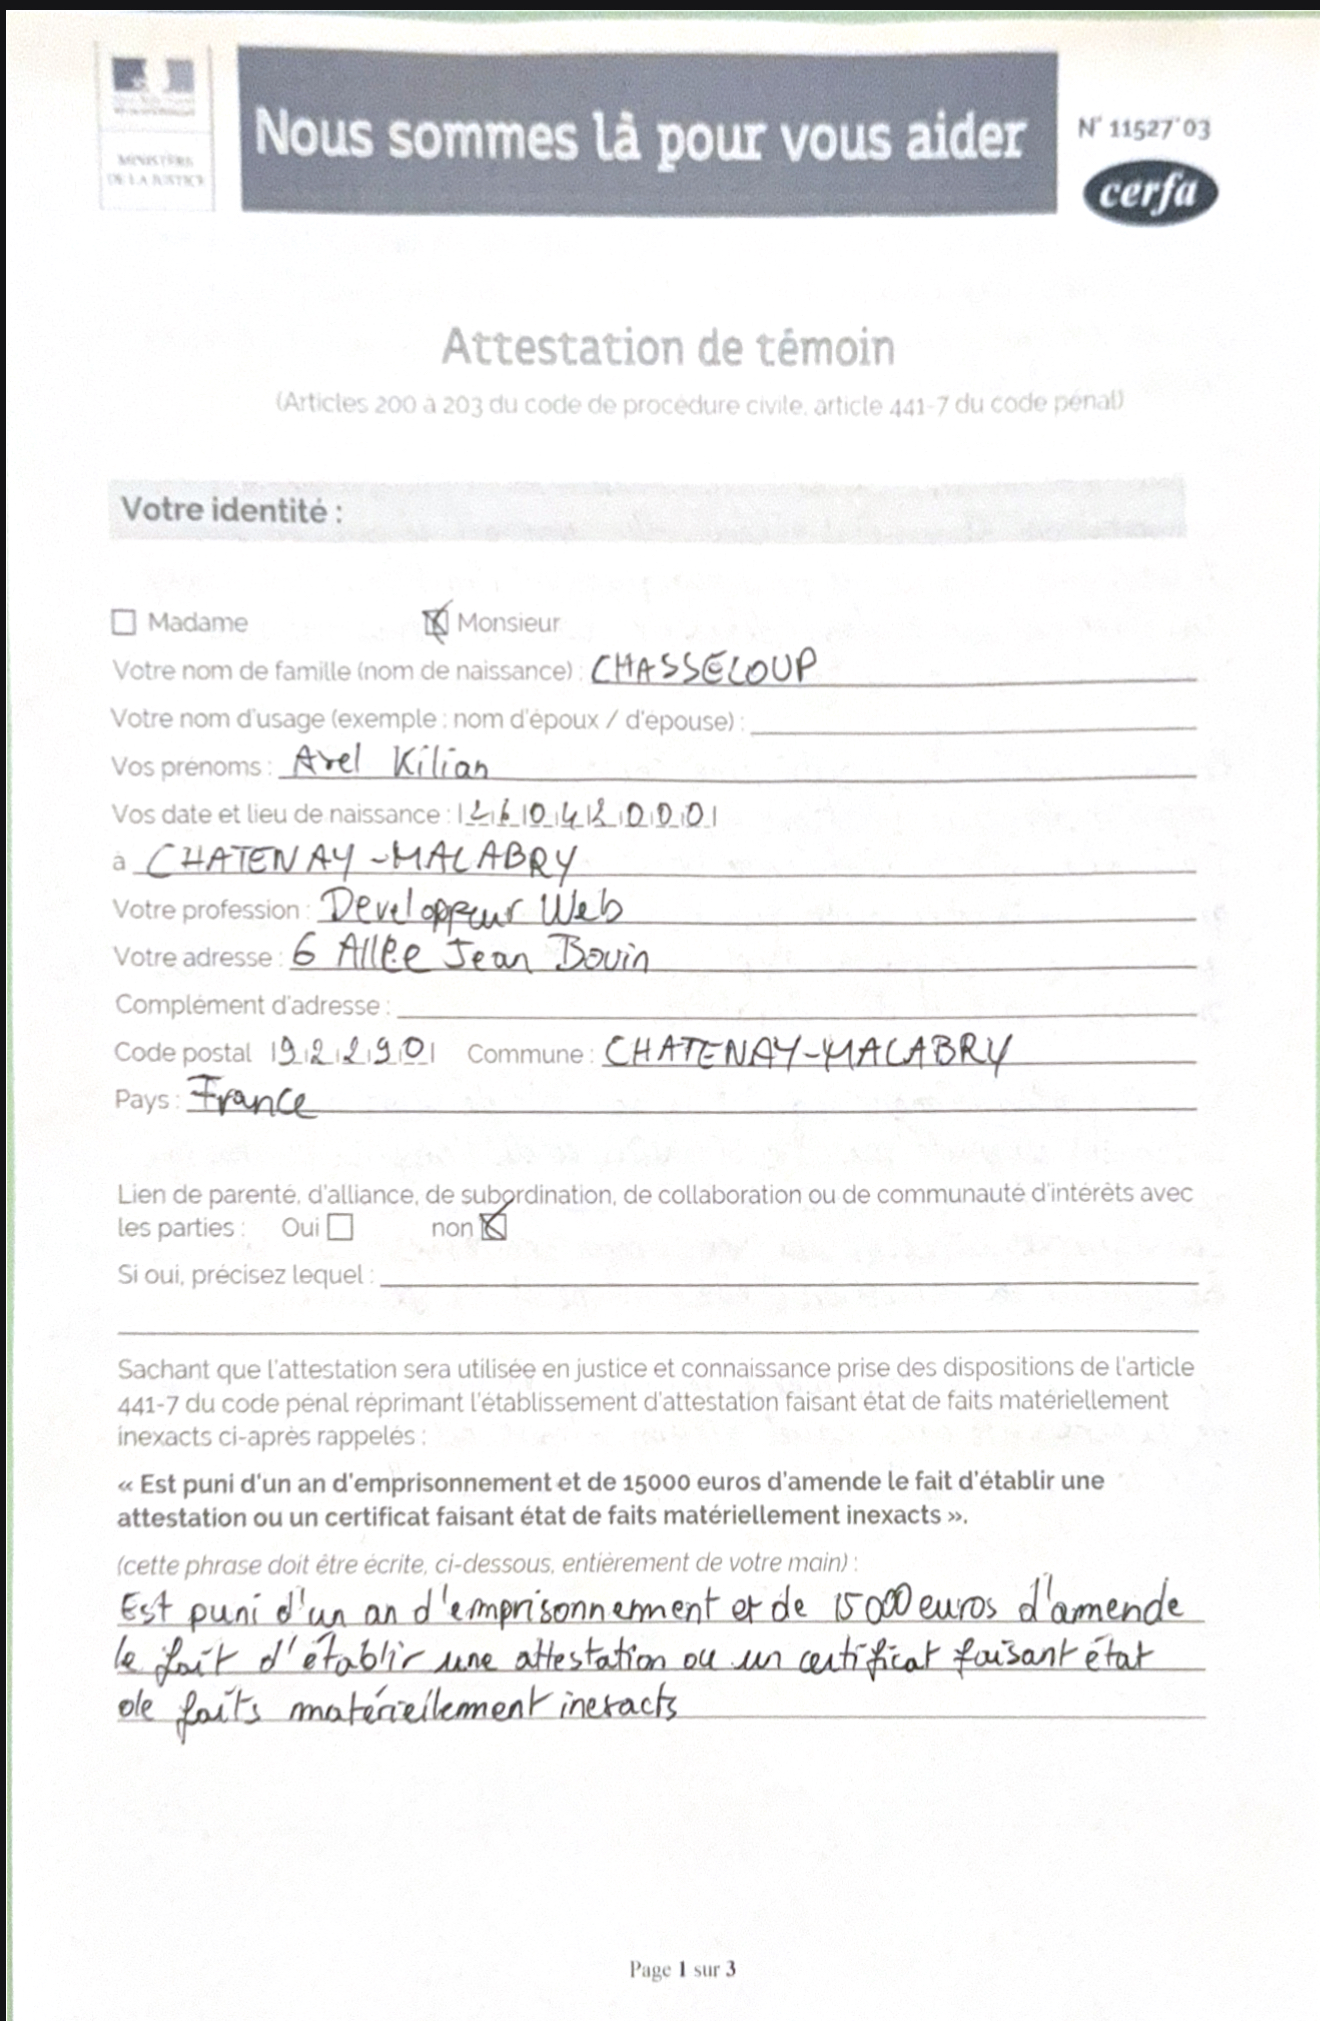 MINISTÈRE
DE LA JUSTICE
Nous sommes là pour vous aider
N° 11527*03
cerfa
Attestation de témoin
(Articles 200 à 203 du code de procédure civile, article 441-7 du code pénal)
Votre identité :
Madame Monsieur
Votre nom de famille (nom de naissance) : CHASSELOUP
Votre nom d'usage (exemple : nom d'époux / d'épouse) :
Vos prénoms : Axel Kilian
Vos date et lieu de naissance : 26042000
à CHATENAY-MALABRY
Votre profession : Developpeur Web
Votre adresse : 6 Allée Jean Bouin
Complément d'adresse :
Code postal 92290 Commune : CHATENAY-MALABRY
Pays : France
Lien de parenté, d'alliance, de subordination, de collaboration ou de communauté d'intérêts avec
les parties : Oui non
Si oui, précisez lequel :
Sachant que l'attestation sera utilisée en justice et connaissance prise des dispositions de l'article
441-7 du code pénal réprimant l'établissement d'attestation faisant état de faits matériellement
inexacts ci-après rappelés :
« Est puni d'un an d'emprisonnement et de 15000 euros d'amende le fait d'établir une
attestation ou un certificat faisant état de faits matériellement inexacts ».
(cette phrase doit être écrite, ci-dessous, entièrement de votre main) :
Est puni d'un an d'emprisonnement et de 15000 euros d'amende
le fait d'établir une attestation ou un certificat faisant état
de faits matériellement inexacts
Page 1 sur 3